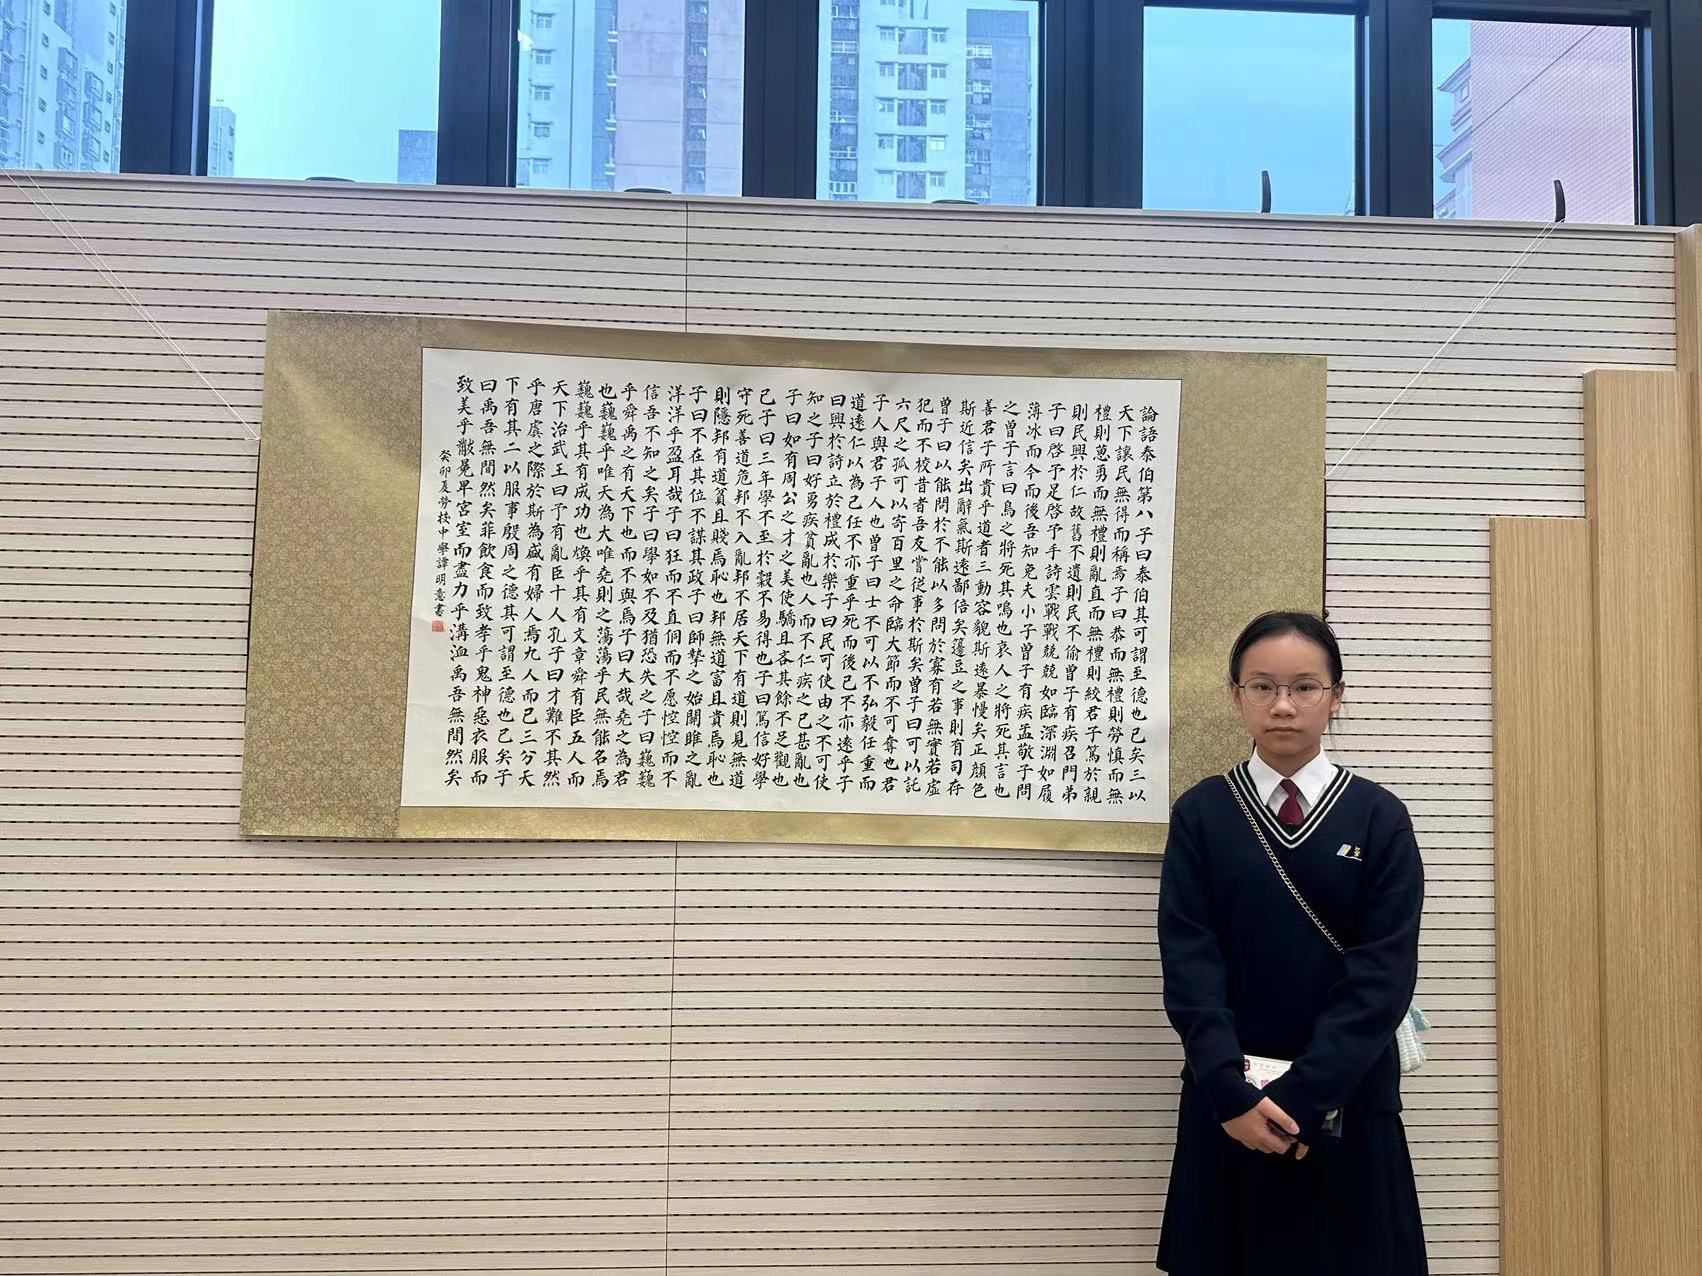 論語泰伯第八子曰泰伯其可謂至德也已矣三以
天下讓民無得而稱焉子曰恭而無禮則勞慎而無
禮則葸勇而無禮則亂直而無禮則絞君子篤於親
則民興於仁故舊不遺則民不偷曾子有疾召門弟
子曰啓予足啓予手詩雲戰戰兢兢如臨深淵如履
薄冰而今而後吾知免夫小子曾子有疾孟敬子問
之曾子言曰鳥之將死其鳴也哀人之將死其言也
善君子所貴乎道者三動容貌斯遠暴慢矣正顏色
斯近信矣出辭氣斯遠鄙倍矣籩豆之事則有司存
曾子曰以能問於不能以多問於寡有若無實若虛
犯而不校昔者吾友嘗從事於斯矣曾子曰可以託
六尺之孤可以寄百里之命臨大節而不可奪也君
子人與君子人也曾子曰士不可以不弘毅任重而
道遠仁以為己任不亦重乎死而後已不亦遠乎子
曰興於詩立於禮成於樂子曰民可使由之不可使
知之子曰好勇疾貧亂也人而不仁疾之已甚亂也
子曰如有周公之才之美使驕且吝其餘不足觀也
已子曰三年學不至於穀不易得也子曰篤信好學
守死善道危邦不入亂邦不居天下有道則見無道
則隱邦有道貧且賤焉恥也邦無道富且貴焉恥也
子曰不在其位不謀其政子曰師摯之始關雎之亂
洋洋乎盈耳哉子曰狂而不直侗而不愿悾悾而不
信吾不知之矣子曰學如不及猶恐失之子曰巍巍
乎舜禹之有天下也而不與焉子曰大哉堯之為君
也巍巍乎唯天為大唯堯則之蕩蕩乎民無能名焉
巍巍乎其有成功也煥乎其有文章舜有臣五人而
天下治武王曰予有亂臣十人孔子曰才難不其然
乎唐虞之際於斯為盛有婦人焉九人而已三分天
下有其二以服事殷周之德其可謂至德也已矣子
曰禹吾無間然矣菲飲食而致孝乎鬼神惡衣服而
致美乎黻冕卑宮室而盡力乎溝洫禹吾無間然矣
癸卯夏勞校中學譚明意書